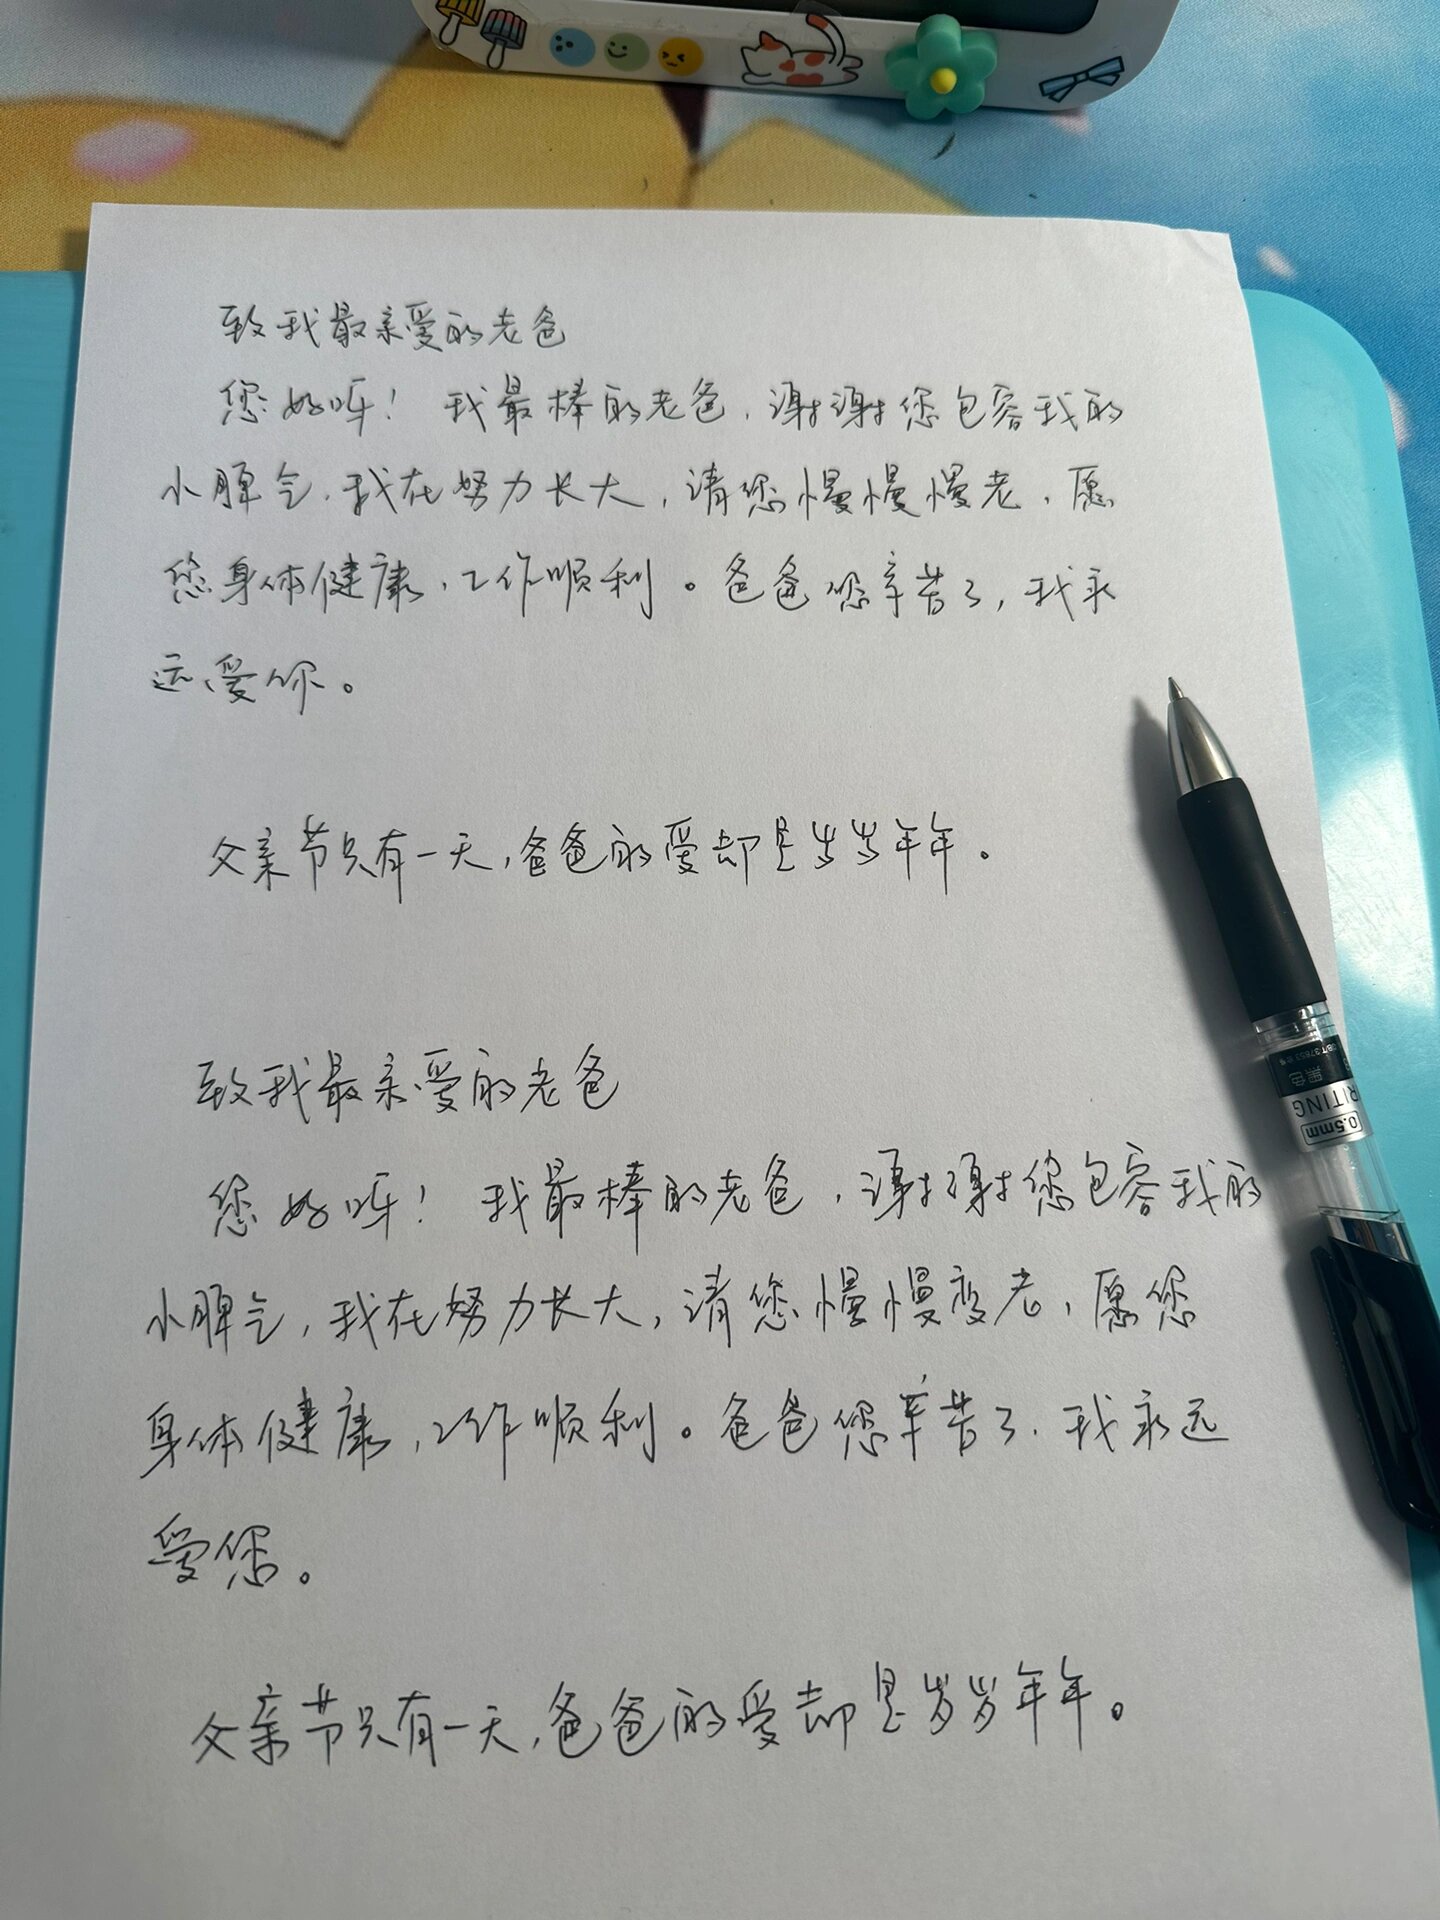 致我最亲爱的老爸
您好呀！我最棒的老爸，谢谢您包容我的
小脾气，我在努力长大，请您慢慢慢老，愿
您身体健康，工作顺利。爸爸您辛苦了，我永
远爱你。
父亲节只有一天，爸爸的爱却是岁岁年年。
致我最亲爱的老爸
您好呀！我最棒的老爸，谢谢您包容我的
小脾气，我在努力长大，请您慢慢变老，愿您
身体健康，工作顺利。爸爸您辛苦了，我永远
爱您。
父亲节只有一天，爸爸的爱却是岁岁年年。
黑色
RITING
0.5mm